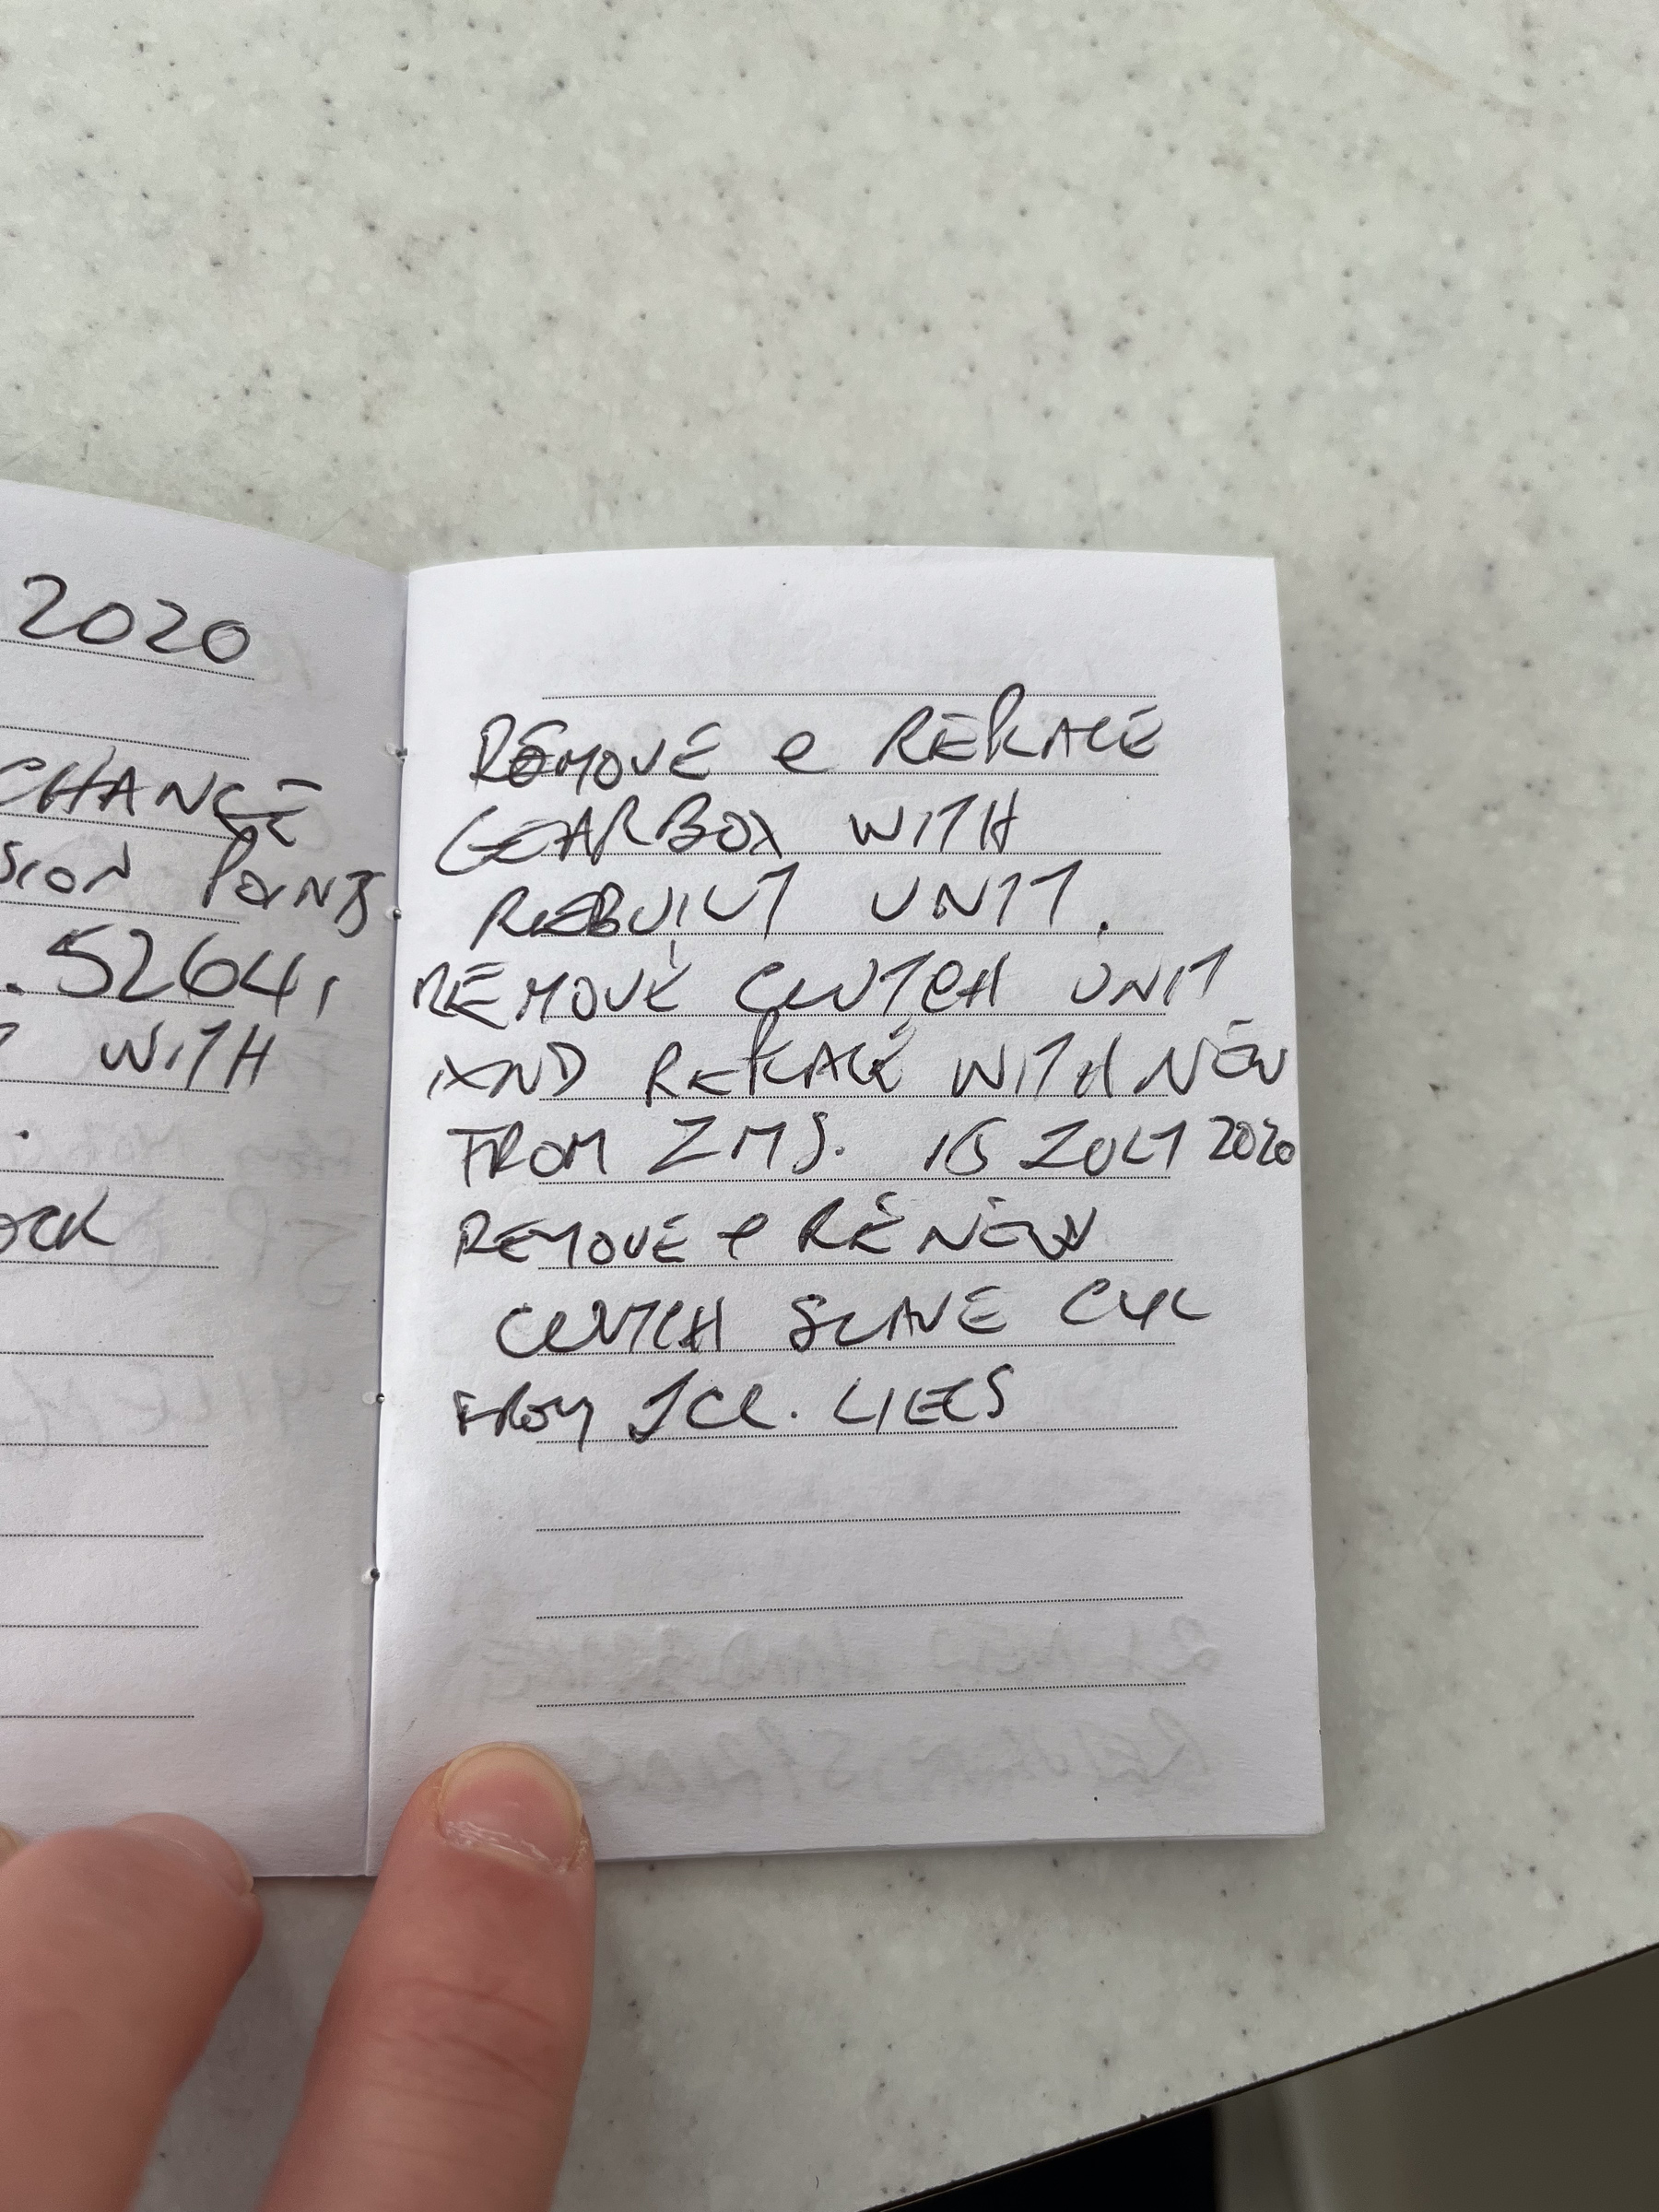 2020
CHANGE
SION POINTS.
. 52641
WITH
OCK
REMOVE e REPLACE
GEARBOX WITH
REBUILT UNIT.
REMOVE CLUTCH UNIT
AND REPLACE WITH NEW
FROM ZMS. 16 JULY 2020
REMOVE e RENEW
CLUTCH SLAVE CYL
FROM